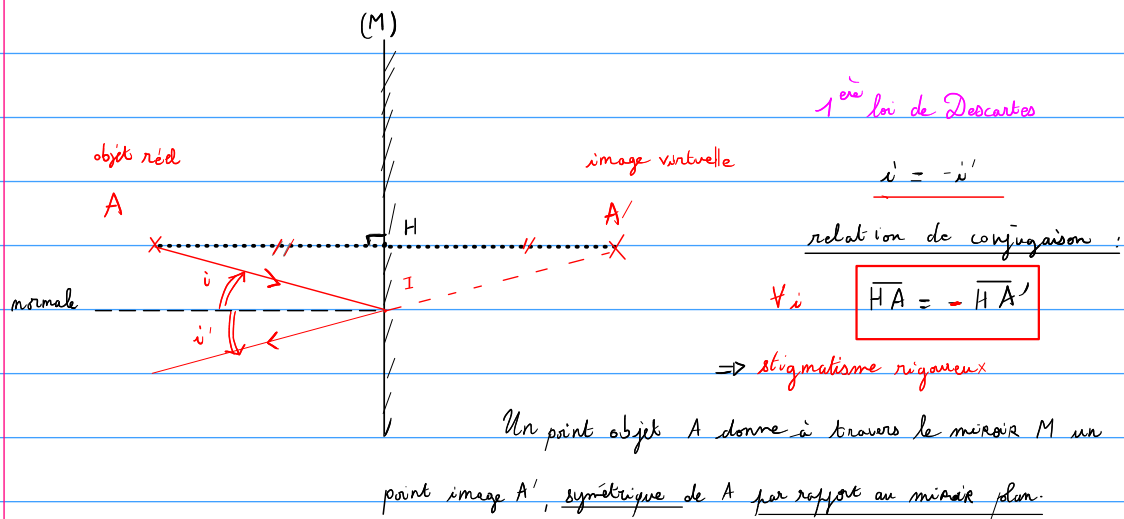 (M)
1ère loi de Descartes
objet réel
image virtuelle
i = -i'
A
A'
H
relation de conjugaison :
i
I
normale
∀i
HA = - HA'
i'
=> stigmatisme rigoureux
Un point objet A donne à travers le miroir M un
point image A', symétrique de A par rapport au miroir plan.